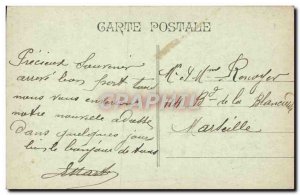 CARTE POSTALE
Précieux Souvenir
arrivé bien port tous
nous vous enverrons
notre nouvelle adresse
Dans quelques jours
bien le bonjour de tous
Mr & Mme
114 Bd de la Blancarde
Marseille